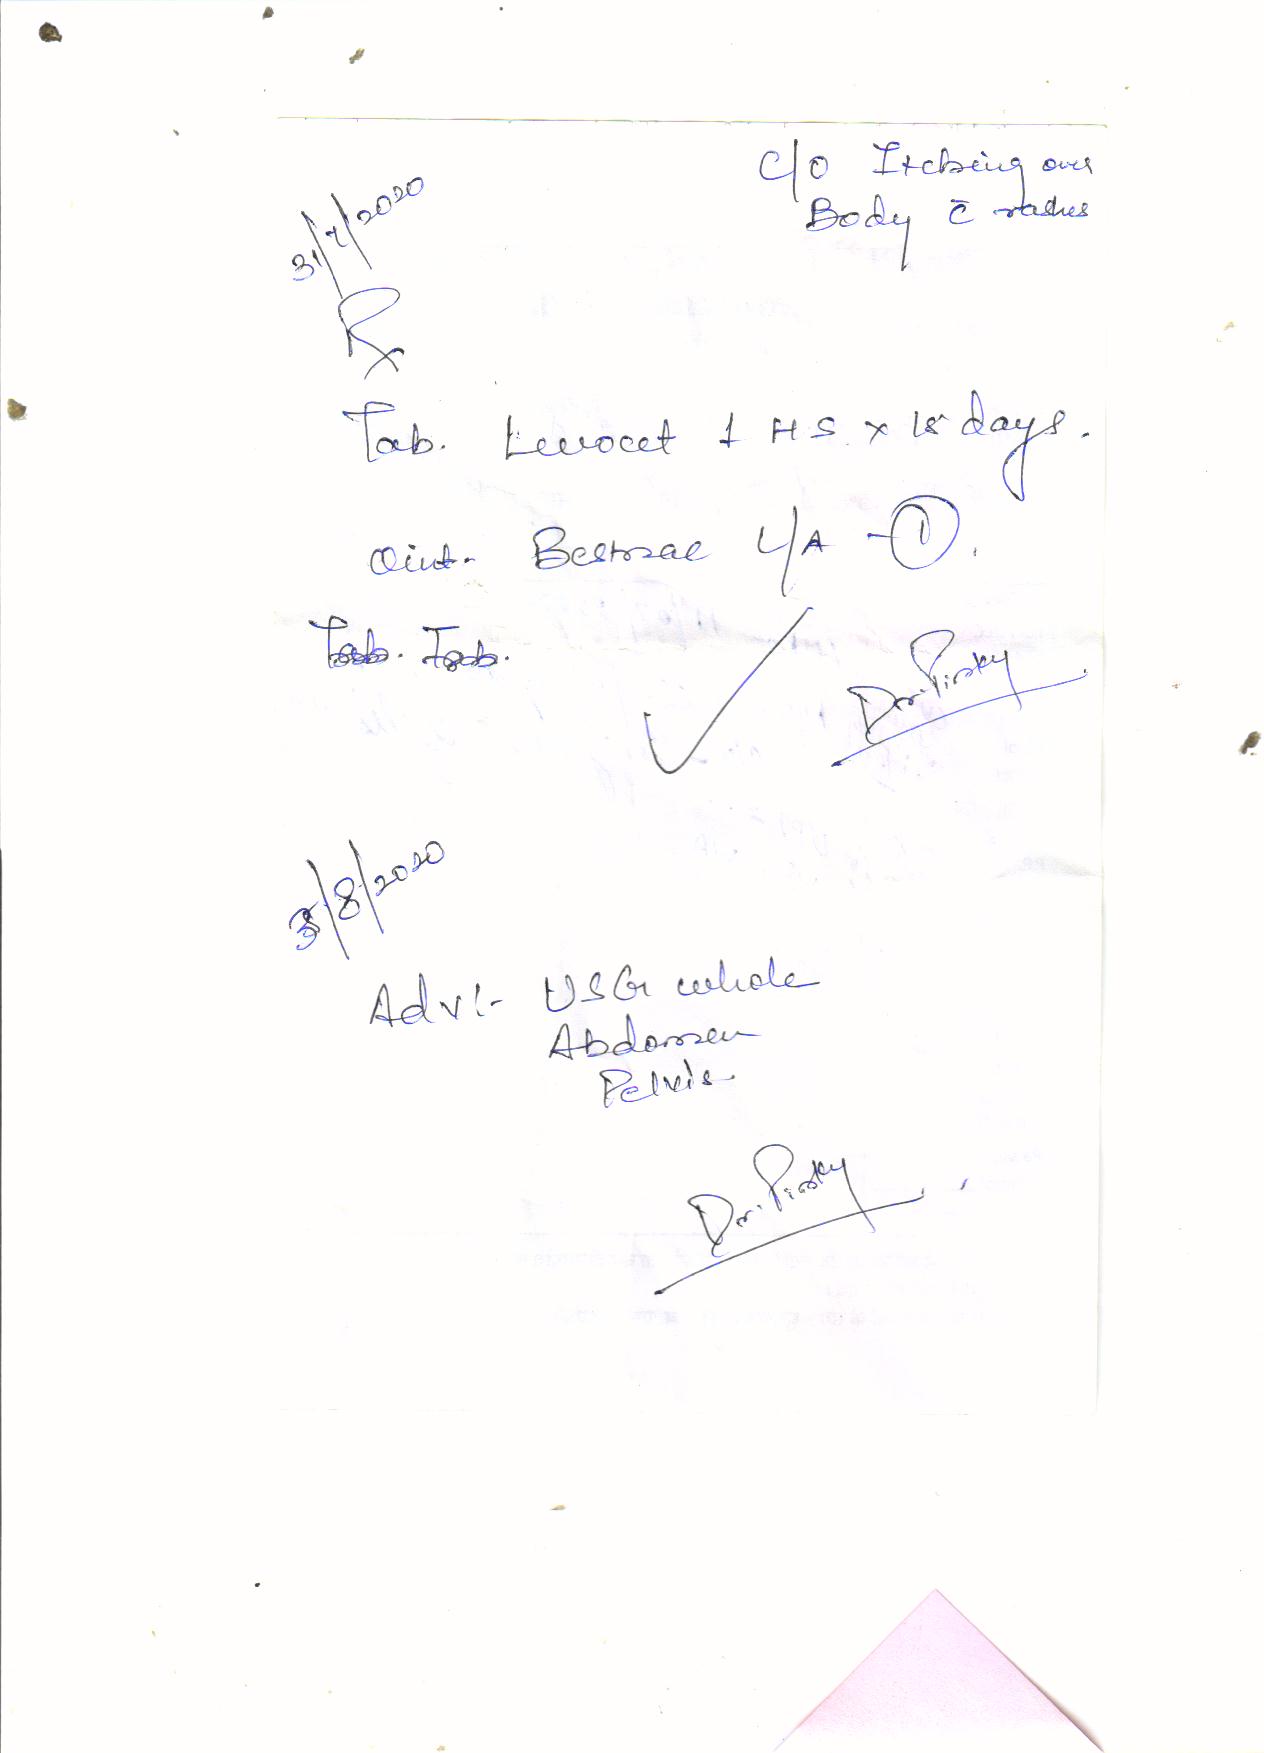 C/O Itching over
Body c̄ rashes
31/7/2020
Rx
Tab. Levocet 1 HS x 15 days.
Oint. L/A - 1.
Tab. Tab.
Dr. Pinky
3/8/2020
Adv:- USG whole
Abdomen
Pelvis.
Dr. Pinky